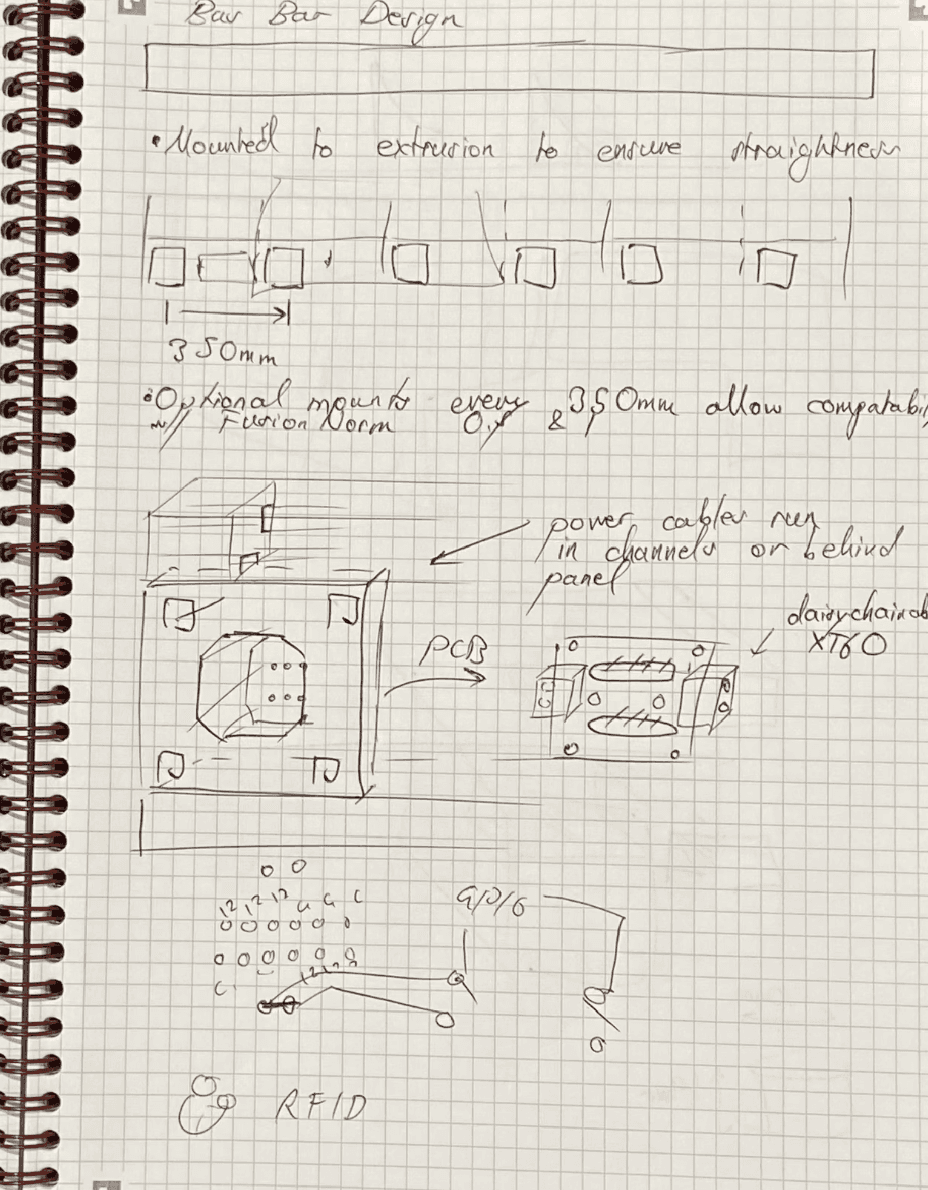 Bar Bar Design
• Mounted to extrusion to ensure straightness
350mm
• Optional mounts every 350mm allow compatabi
w// Fusion Norm 0,9 &
power cables run
in channels or behind
panel
daisychainab
XT60
PCB
12 12 12 G G C
C
12
RFID